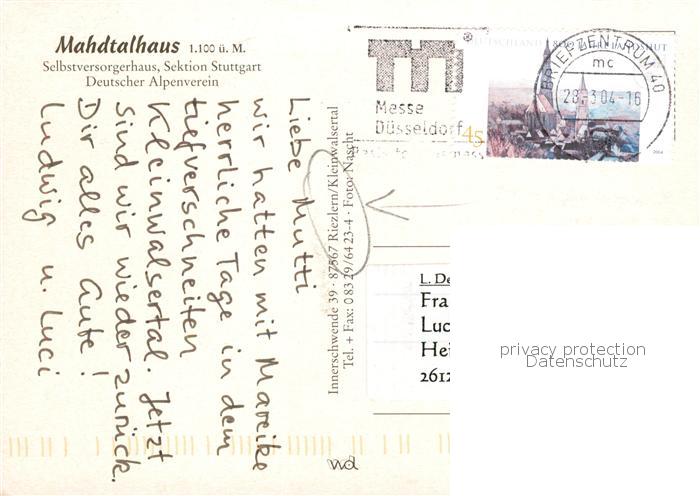 Mahdtalhaus 1.100 ü. M.
Selbstversorgerhaus, Sektion Stuttgart
Deutscher Alpenverein
Liebe Mutti
wir hatten mit Mareike
herrliche Tage in dem
tiefverschneiten
Kleinwalsertal. Jetzt
sind wir wieder zurück.
Dir alles Gute!
Ludwig u. Luci
Innerschwende 39 · 87567 Riezlern/Kleinwalsertal
Tel. + Fax: 0 83 29/64 23-4 · Foto: Nascht
wd
Messe
Düsseldorf
DEUTSCHLAND 800 JAHRE LANDSHUT
45
2004
BRIEFZENTRUM 40
mc
28.-3.04-16
L. De
Fra
Luc
Hei
2612
privacy protection
Datenschutz